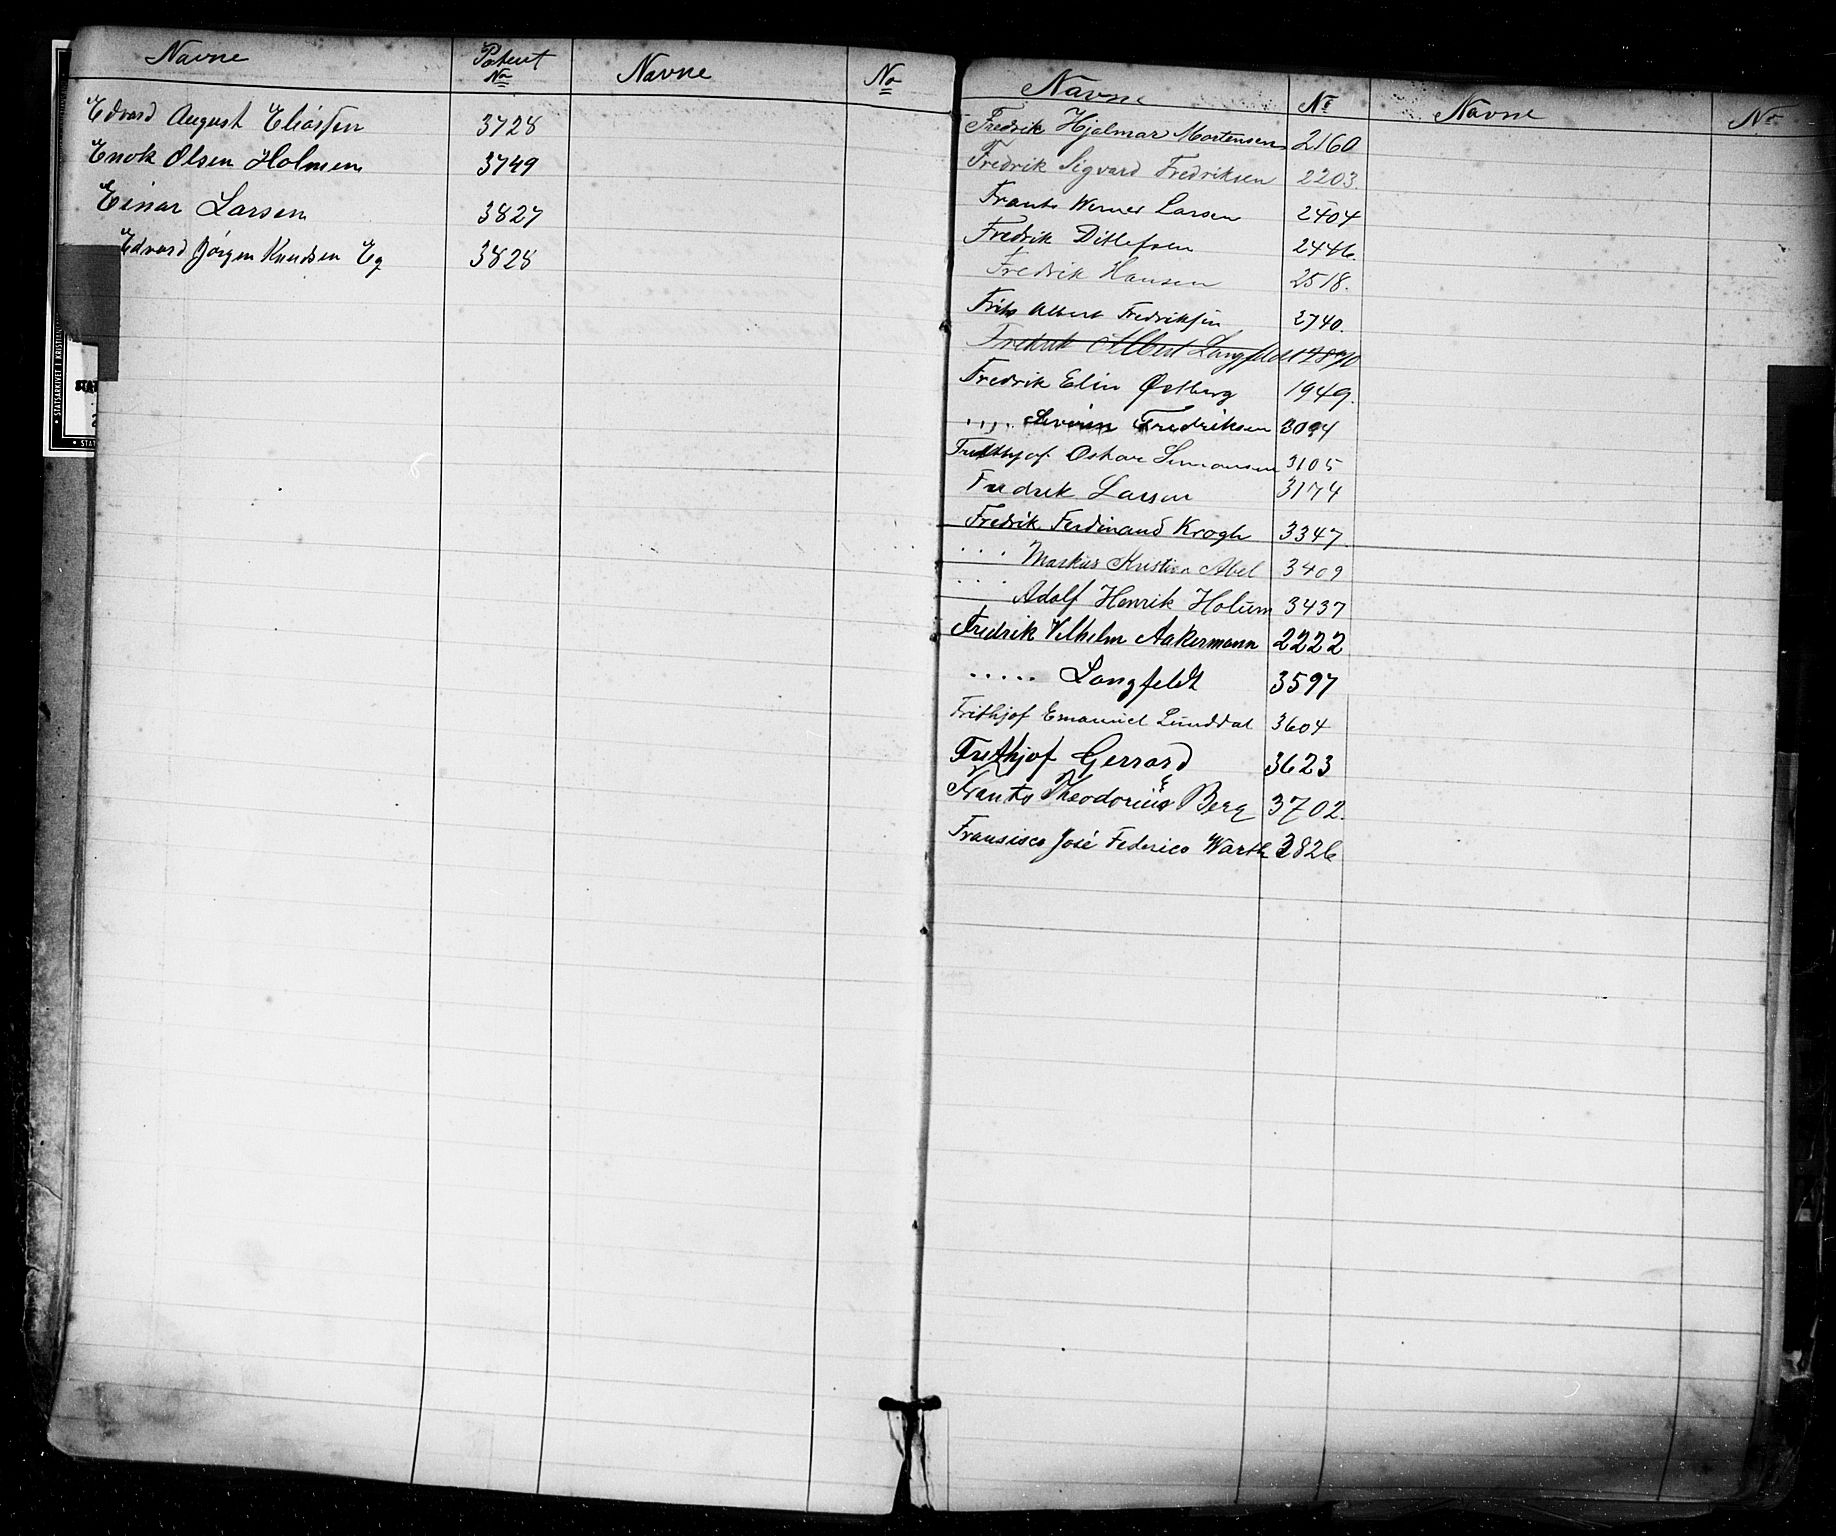 Navne Patent No Navne No
Edvard August Eliassen 3728
Enok Olsen Holmen 3749
Einar Larsen 3827
Edvard Jörgen Knudsen Eg 3828
Navne No Navne No
Fredrik Hjalmar Mortensen 2160
Fredrik Sigvard Fredriksen 2203.
Frants Werner Larsen 2404
Fredrik Ditlefsen 2446.
Fredrik Hansen 2518.
Frits Albert Fredriksen 2740.
Fredrik Albert Langfeldt
Fredrik Elin Østberg 1949.
.,,. Severin Fredriksen 3094
Frithjof Oskar Simonsen 3105
Fredrik Larsen 3174
Fredrik Ferdinand Krogh 3347
. . . Markus Kristian Abel 3409
. . . Adolf Henrik Holum 3437
Fredrik Vilhelm Aakermann 2222
. . . . . Langfeldt 3597
Frithjof Emanuel Lunddal 3604
Frithjof Gerrard 3623
Frants Theodorius Berg 3702.
Fransisco José Federico Warth 3826